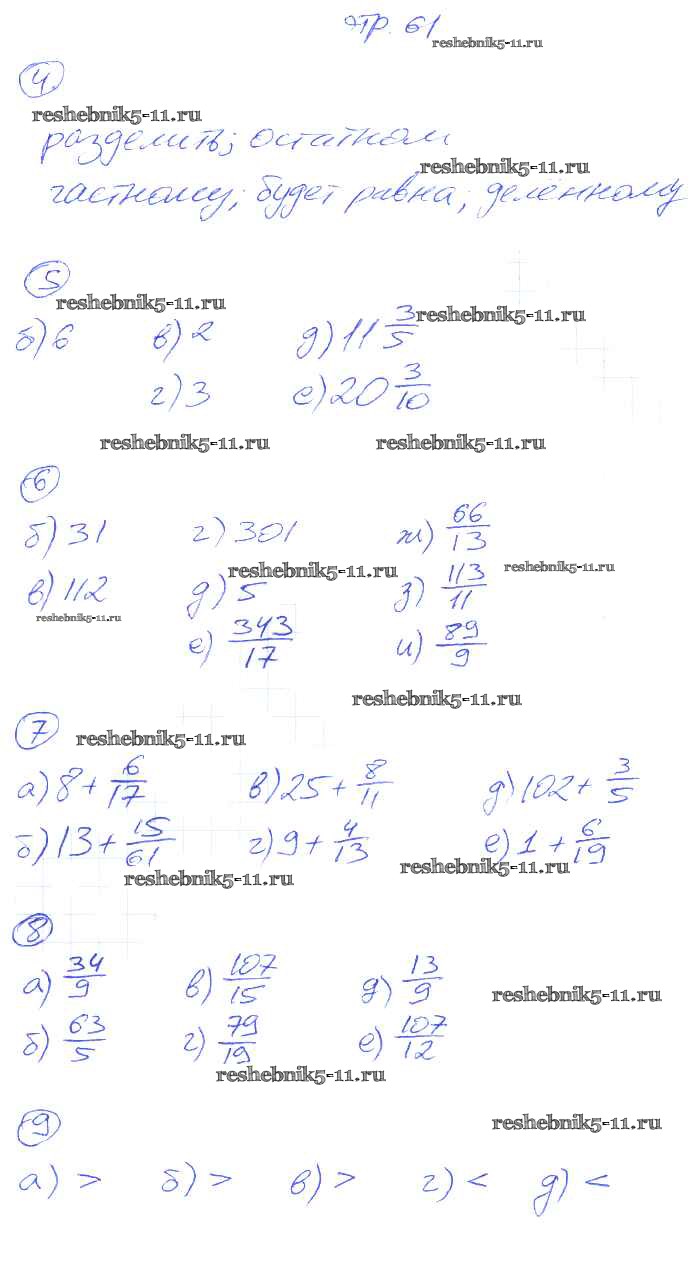 стр. 61
reshebnik5-11.ru
4
reshebnik5-11.ru
разделить; остатком
reshebnik5-11.ru
частному; будет равна; делённому
5
reshebnik5-11.ru
reshebnik5-11.ru
б) 6 в) 2 д) 11 3/5
г) 3 е) 20 3/10
reshebnik5-11.ru reshebnik5-11.ru
6
б) 31 г) 301 ж) 66/13
reshebnik5-11.ru reshebnik5-11.ru
в) 112 д) 5 з) 113/11
reshebnik5-11.ru
е) 343/17 и) 89/9
reshebnik5-11.ru
7
reshebnik5-11.ru
а) 8 + 6/17 в) 25 + 8/11 д) 102 + 3/5
б) 13 + 15/61 г) 9 + 4/13 е) 1 + 6/19
reshebnik5-11.ru reshebnik5-11.ru
8
а) 34/9 в) 107/15 д) 13/9
reshebnik5-11.ru
б) 63/5 г) 79/19 е) 107/12
reshebnik5-11.ru
9
reshebnik5-11.ru
а) > б) > в) > г) < д) <